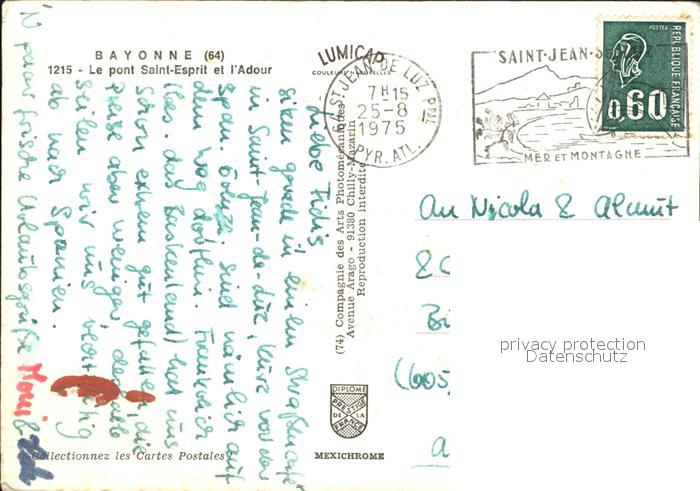 BAYONNE (64)
1215 - Le pont Saint-Esprit et l'Adour
LUMICAP
COULEURS NATURELLES
64 ST JEAN DE LUZ PPAL
7H15
25-8
1975
PYR. ATL.
SAINT-JEAN-
MER ET MONTAGNE
POSTES
REPUBLIQUE FRANÇAISE
0,60
Liebe Fidis
sitzen gerade in einem Straßencafé
in Saint-Jean-de-Luz, kurz vor der
Span. Grenze. Sind nämlich auf
dem Weg dorthin. Frankreich
(bes. das Baskenland) hat uns
schon extrem gut gefallen, die
Preise aber weniger, deshalb
seilen wir uns
ab nach Spanien.
N paar frische Urlaubsgrüße
(74) Compagnie des Arts Photomécaniques
Avenue Arago - 91380 Chilly-Mazarin
Reproduction Interdite
An Nicola & Almut
(605
privacy protection
Datenschutz
DIPLOME
PRESTIGE
DE LA
FRANCE
Collectionnez les Cartes Postales
MEXICHROME